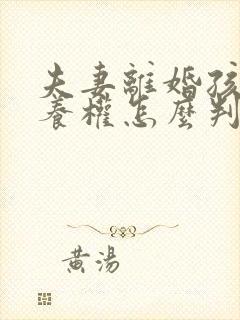 夫妻離婚孩
養權怎麼判
黃湯